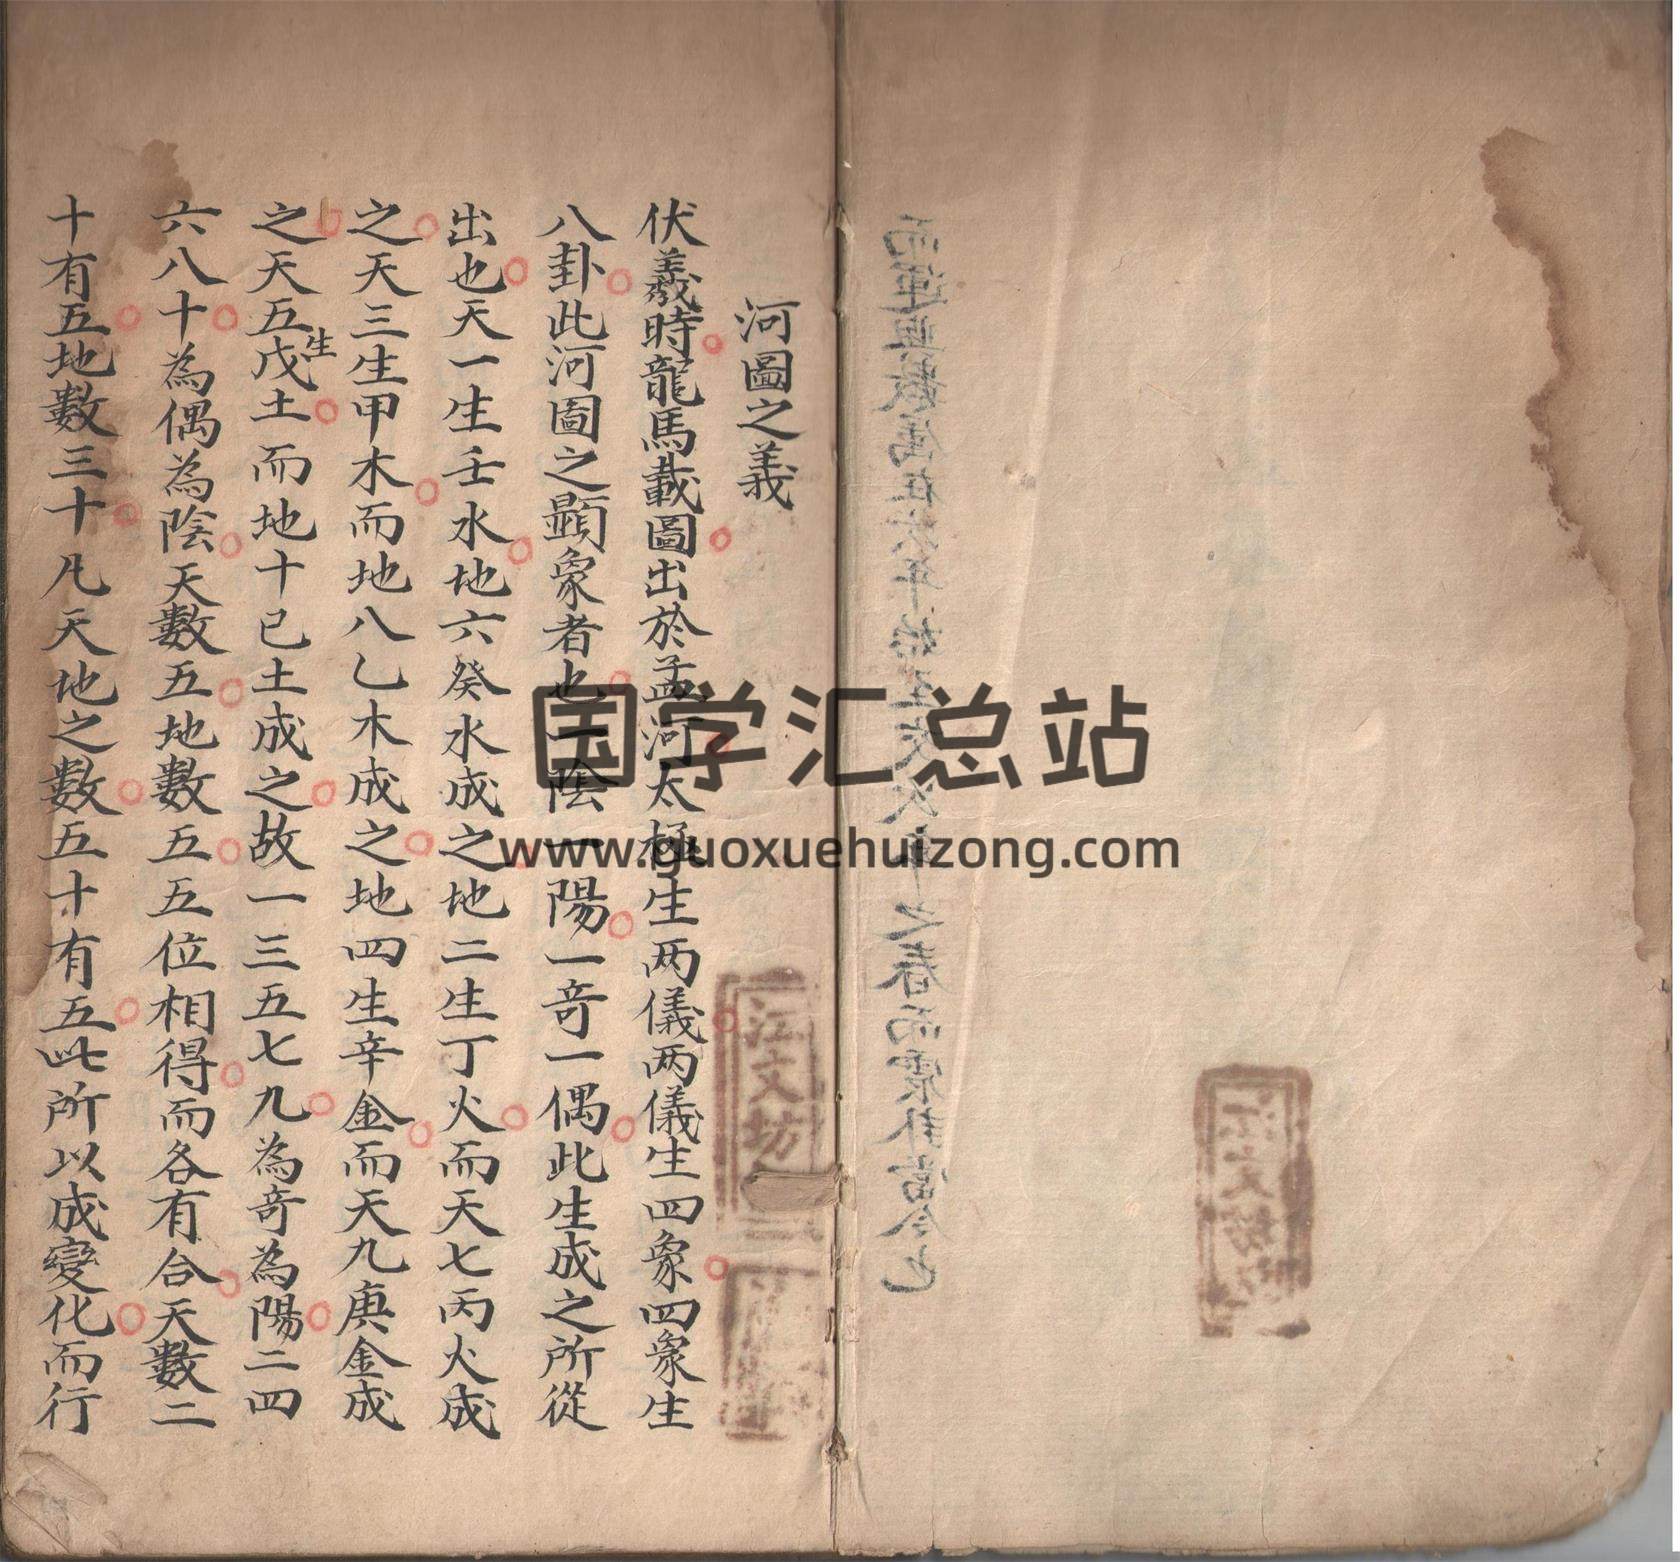 河圖之義
伏羲時龍馬載圖出於孟河太極生两儀两儀生四象四象生
八卦此河圖之顕象者也一陰一陽一竒一偶此生成之所從
出也天一生壬水地六癸水成之地二生丁火而天七丙火成
之天三生甲木而地八乙木成之地四生辛金而天九庚金成
之天五生戊土而地十己土成之故一三五七九為竒為陽二四
六八十為偶為陰天數五地數五五位相得而各有合天數二
十有五地數三十凢天地之數五十有五此所以成變化而行
江文坊
国学汇总站
www.guoxuehuizong.com